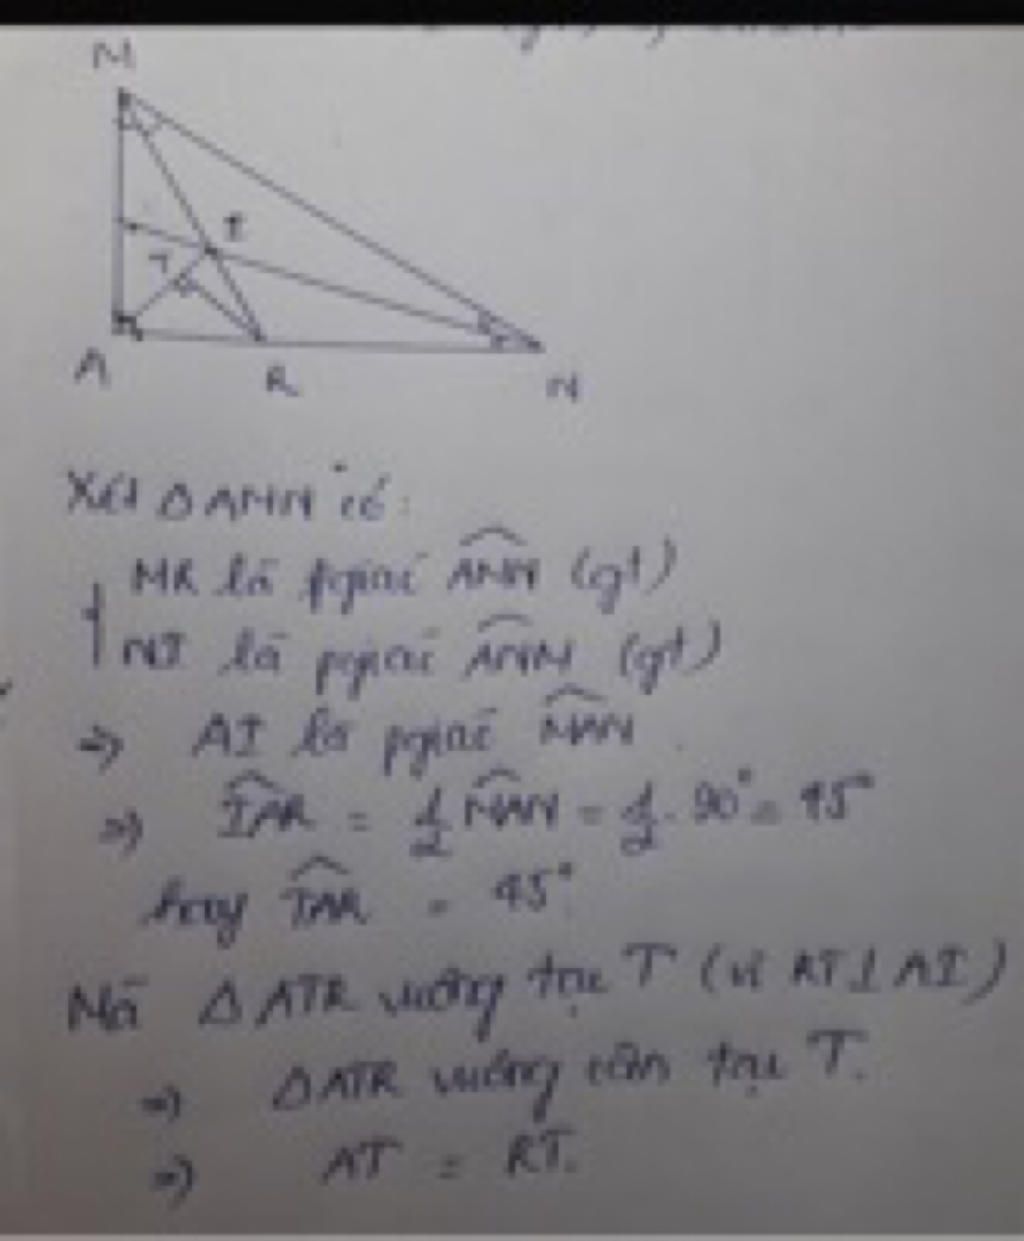 M
I
T
A
R
N
Xét Δ AMN có:
MR là pgiác AMN (gt)
NI là pgiác ANM (gt)
=> AI là pgiác MAN
=> IAR = 1/2 MAN = 1/2 . 90° = 45°
hay TAR = 45°
Mà Δ ATR vuông tại T (vì RT ⊥ AI)
=> Δ ATR vuông cân tại T.
=> AT = RT.